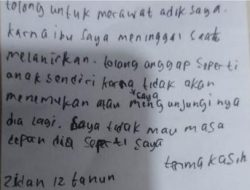 tolong untuk merawat adik saya.
karna ibu saya meninggal saat
melahirkan. tolong anggap seperti
anak sendiri karna tidak akan
menemukan atau mengunjungi nya
saya
dia lagi. saya tidak mau masa
depan dia seperti saya
terima kasih
zidan 12 tahun